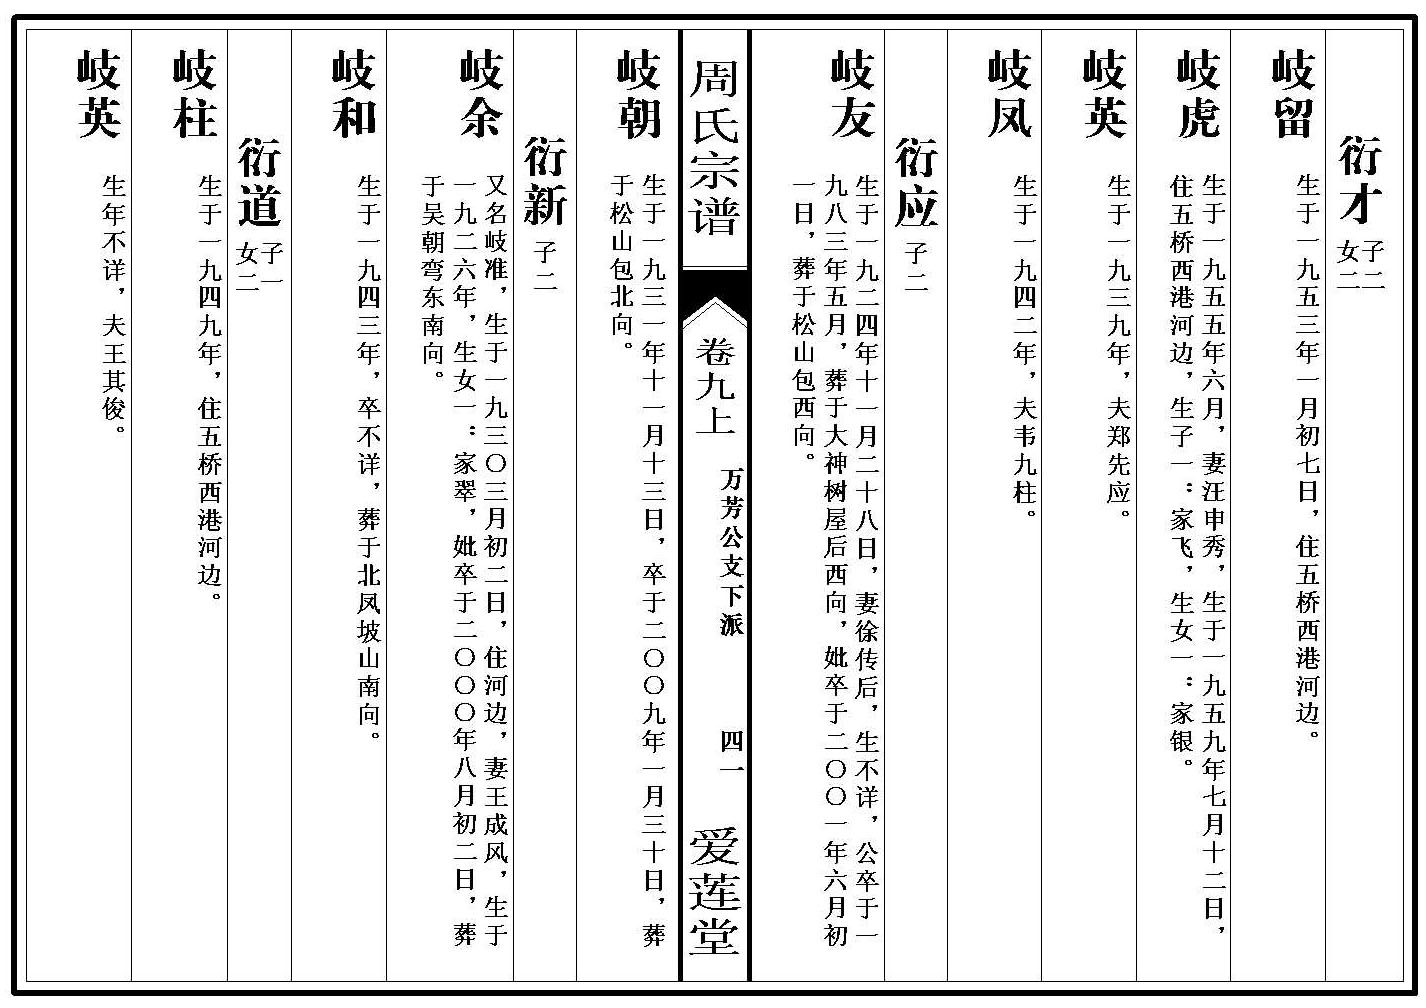 衍才
子二
女二
岐留
生于一九五三年一月初七日，住五桥西港河边。
岐虎
生于一九五五年六月，妻汪申秀，生于一九五九年七月十二日，
住五桥西港河边，生子一：家飞，生女一：家银。
岐英
生于一九三九年，夫郑先应。
岐凤
生于一九四二年，夫韦九柱。
衍应
子二
岐友
生于一九二四年十一月二十八日，妻徐传后，生不详，公卒于一
九八三年五月，葬于大神树屋后西向，妣卒于二〇〇一年六月初
一日，葬于松山包西向。
周氏宗谱
卷九上
万芳公支下派
四一
爱莲堂
岐朝
生于一九三一年十一月十三日，卒于二〇〇九年一月三十日，葬
于松山包北向。
衍新
子二
岐余
又名岐准，生于一九三〇三月初二日，住河边，妻王成风，生于
一九二六年，生女一：家翠，妣卒于二〇〇〇年八月初二日，葬
于吴朝弯东南向。
岐和
生于一九四三年，卒不详，葬于北凤坡山南向。
衍道
子一
女二
岐柱
生于一九四九年，住五桥西港河边。
岐英
生年不详，夫王其俊。